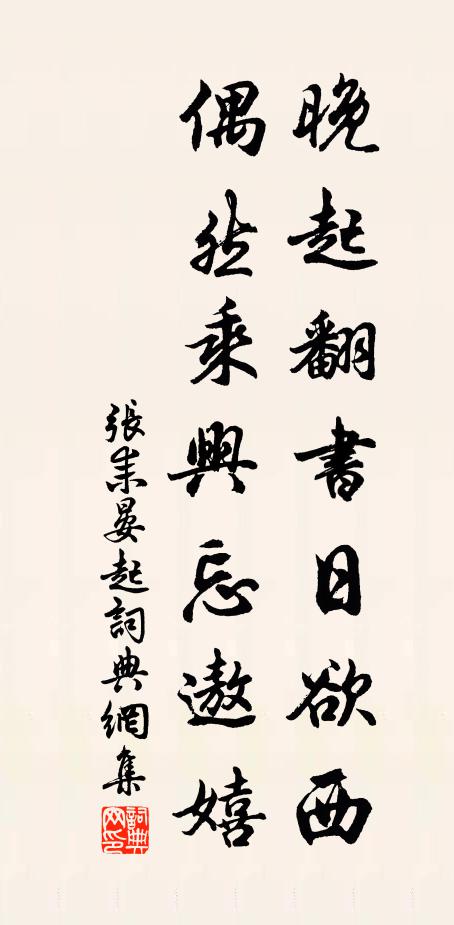 晚起翻書日欲西
偶然乘興忘遨嬉
張耒晏起詞典網集
詞典網印